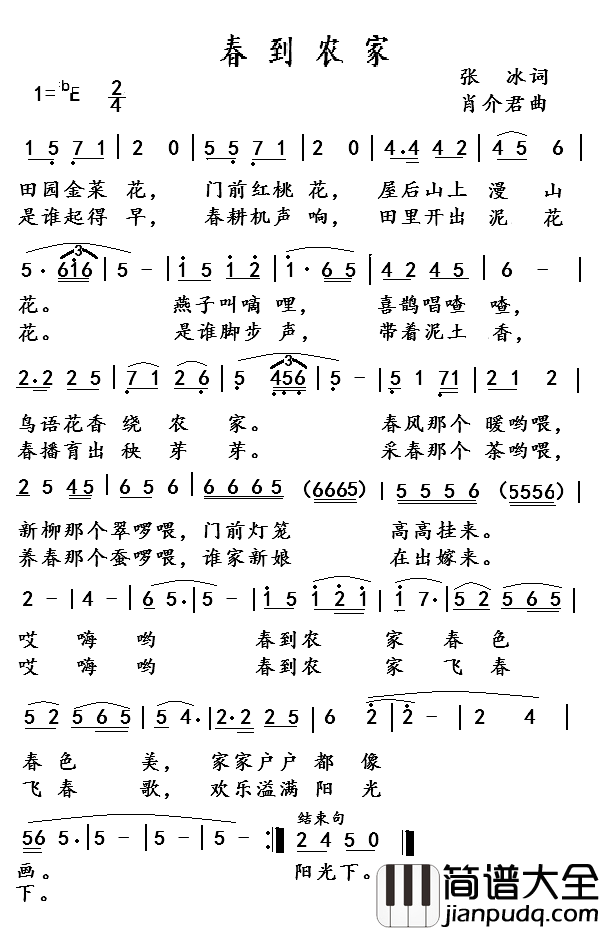 春到农家
1=ᵇE 2/4
张 冰词
肖介君曲
1 5 7 1 | 2 0 | 5 5 7 1 | 2 0 | 4. 4 4 4 | 4 5 6 |
田园金菜 花, 门前红桃 花, 屋后山上 漫 山
是谁起得 早, 春耕机声 响, 田里开出 泥 花
5 . 6i6 | 5 - | i 5 i 2 | i . 6 5 | 4 2 4 5 | 2 - |
3
花。 燕子叫嘀 哩, 喜鹊唱喳 喳,
花。 是谁脚步 声, 带着泥土 香,
2. 2 2 5 | 7 1 2 6 | 5 456 | 5 - | 5 1 71 | 2 1 2 |
3
鸟语花香 绕 农 家。 春风那个 暖哟喂,
春播育出 秧 芽 芽。 采春那个 茶哟喂,
2 5 45 | 6 5 6 | 6 6 6 5 | (6665) | 5 5 5 6 | (5556) |
新柳那个翠啰喂, 门前灯笼 高高挂来。
养春那个蚕啰喂, 谁家新娘 在出嫁来。
2 - | 4 - | 6 5. | 5 - | i 5 | i 2 i | i 7. | 5 2 5 6 5 |
哎 嗨 哟 春到农 家 春 色
哎 嗨 哟 春到农 家 飞 春
5 2 5 6 5 | 5 4. | 2. 2 2 2 5 | 6 2 | 2 - | 2 4 |
春 色 美, 家家户户 都 像
飞 春 歌, 欢乐溢满 阳 光
结束句
56 5. | 5 - | 5 - :| 2 4 5 0 |
画。 阳光下。
下。
简谱大全
jianpudq.com